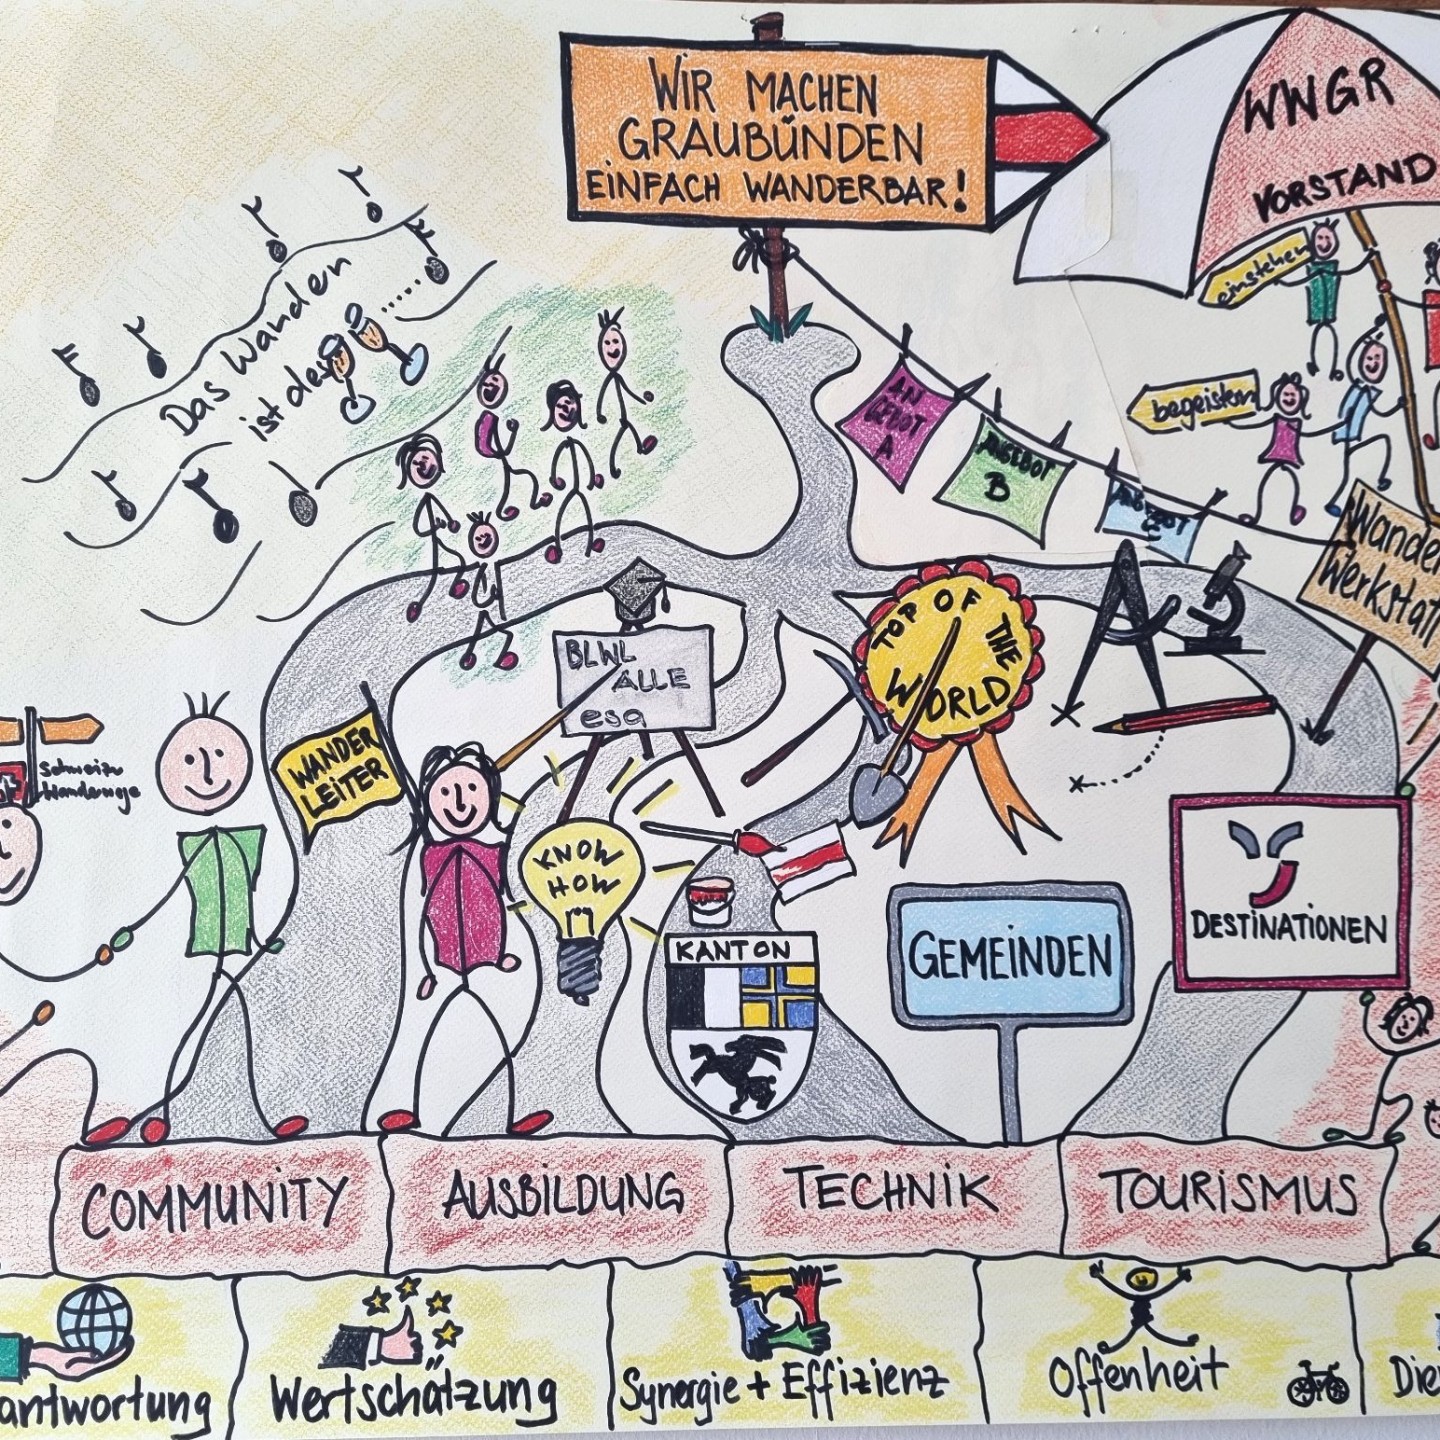 WIR MACHEN
GRAUBÜNDEN
EINFACH WANDERBAR!
WWGR
VORSTAND
einstehen
begeistern
Das Wandern
ist des
AN
GEBOT
A
ANGEBOT
B
ANGEBOT
C
Wander
Werkstatt
BLWL
ALLE
esa
TOP OF THE
WORLD
WANDER
LEITER
Schweizer
Wanderwege
KNOW
HOW
KANTON
GEMEINDEN
DESTINATIONEN
COMMUNITY
AUSBILDUNG
TECHNIK
TOURISMUS
antwortung
Wertschätzung
Synergie + Effizienz
Offenheit
Die